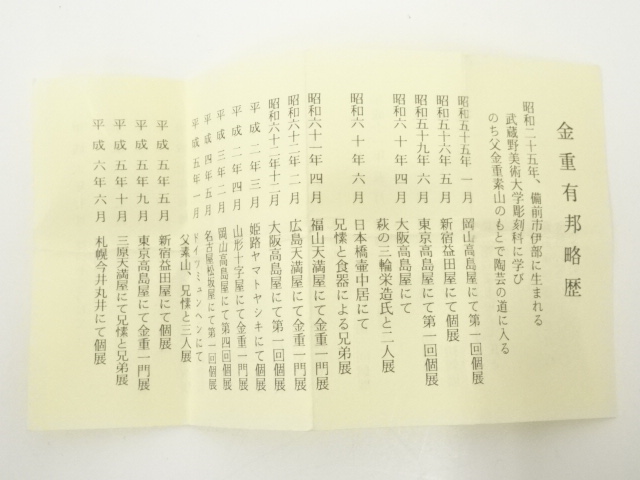 金重有邦略歴
昭和二十五年、備前市伊部に生まれる
武蔵野美術大学彫刻科に学び
のち父金重素山のもとで陶芸の道に入る
昭和五十五年 一 月 岡山高島屋にて第一回個展
昭和五十六年 五 月 新宿益田屋にて個展
昭和五十九年 六 月 東京高島屋にて第一回個展
昭和六 十 年 四 月 大阪高島屋にて
萩の三輪栄造氏と二人展
昭和六 十 年 六 月 日本橋壷中居にて
兄愫と食器による兄弟展
昭和六十一年 四 月 福山天満屋にて金重一門展
昭和六十二年 二 月 広島天満屋にて金重一門展
昭和六十二年十二月 大阪高島屋にて第一回個展
平 成 二 年 三 月 姫路ヤマトヤシキにて個展
平 成 二 年 四 月 山形十字屋にて金重一門展
平 成 三 年 二 月 岡山高島屋にて第四回個展
平 成 四 年 五 月 名古屋松坂屋にて第一回個展
平 成 五 年 一 月 ドイツ・ミュンヘンにて
父素山、兄愫と三人展
平 成 五 年 五 月 新宿益田屋にて個展
平 成 五 年 九 月 東京高島屋にて金重一門展
平 成 五 年 十 月 三原天満屋にて兄愫と兄弟展
平 成 六 年 六 月 札幌今井丸井にて個展